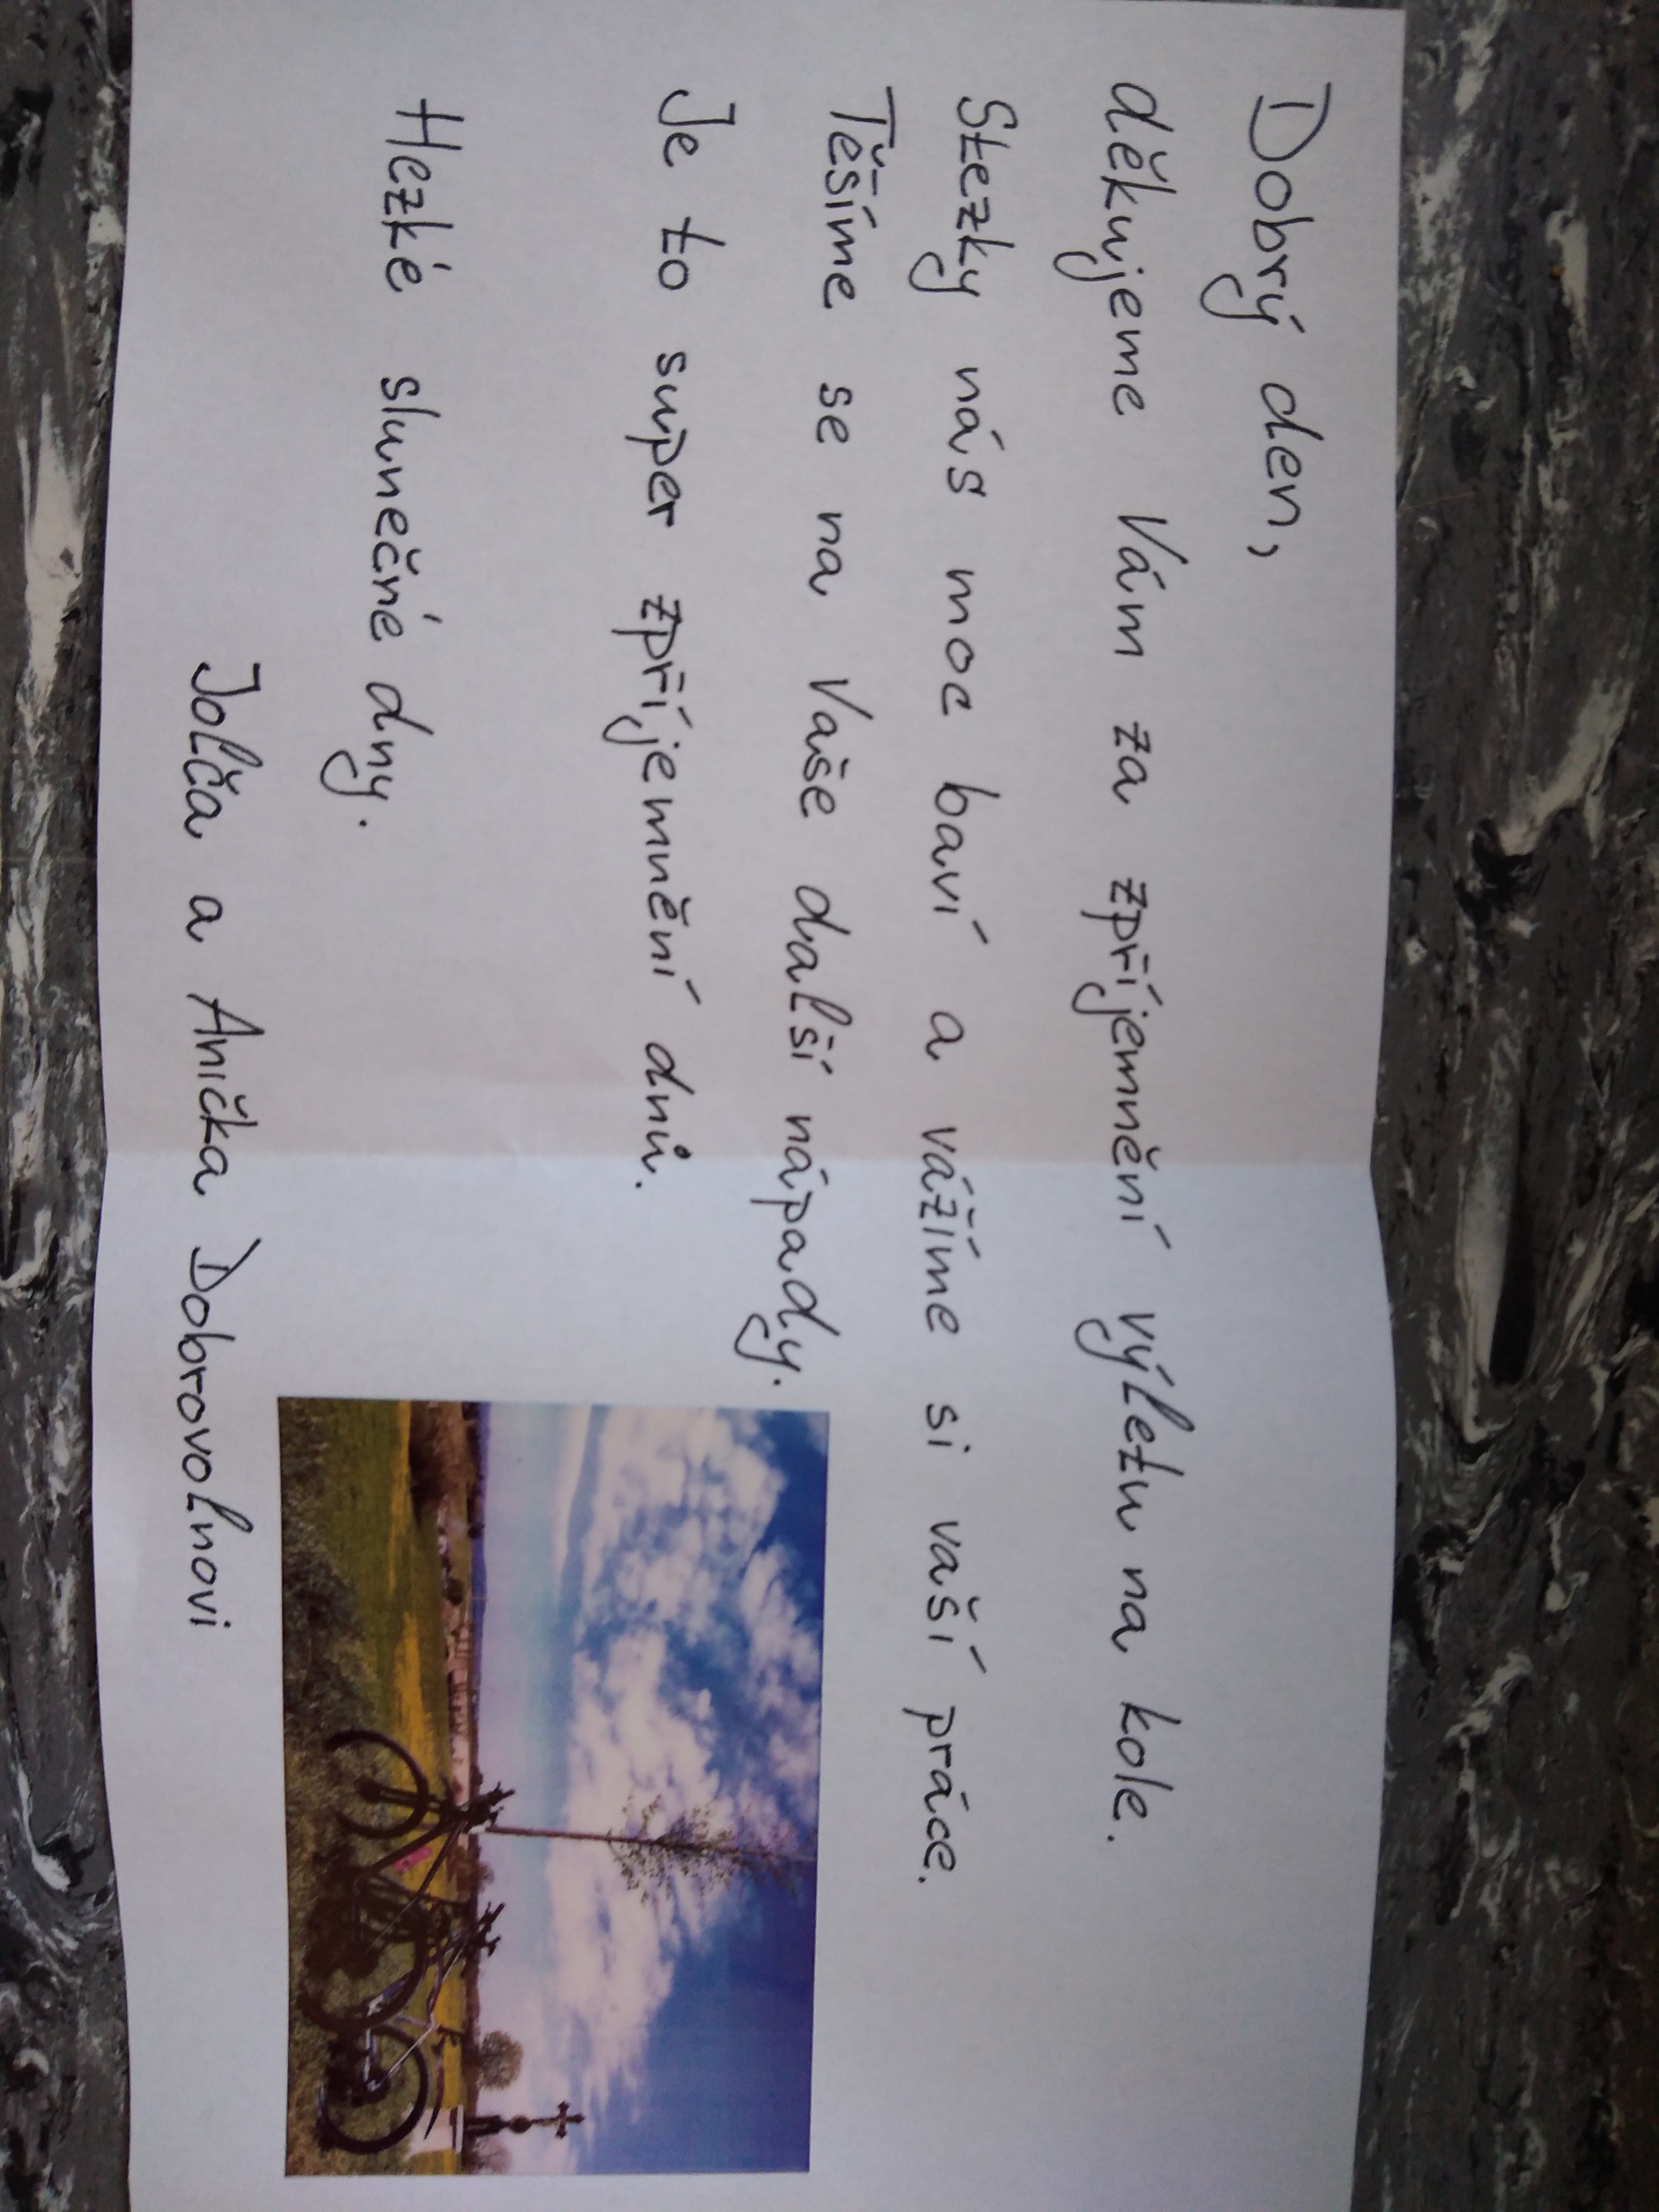 Dobrý den,
děkujeme Vám za zpříjemnění výletu na kole.
Stezky nás moc baví a vážíme si vaší práce.
Těšíme se na Vaše další nápady.
Je to super zpříjemnění dnů.
Hezké slunečné dny.
Jolča a Anička Dobrovolnovi